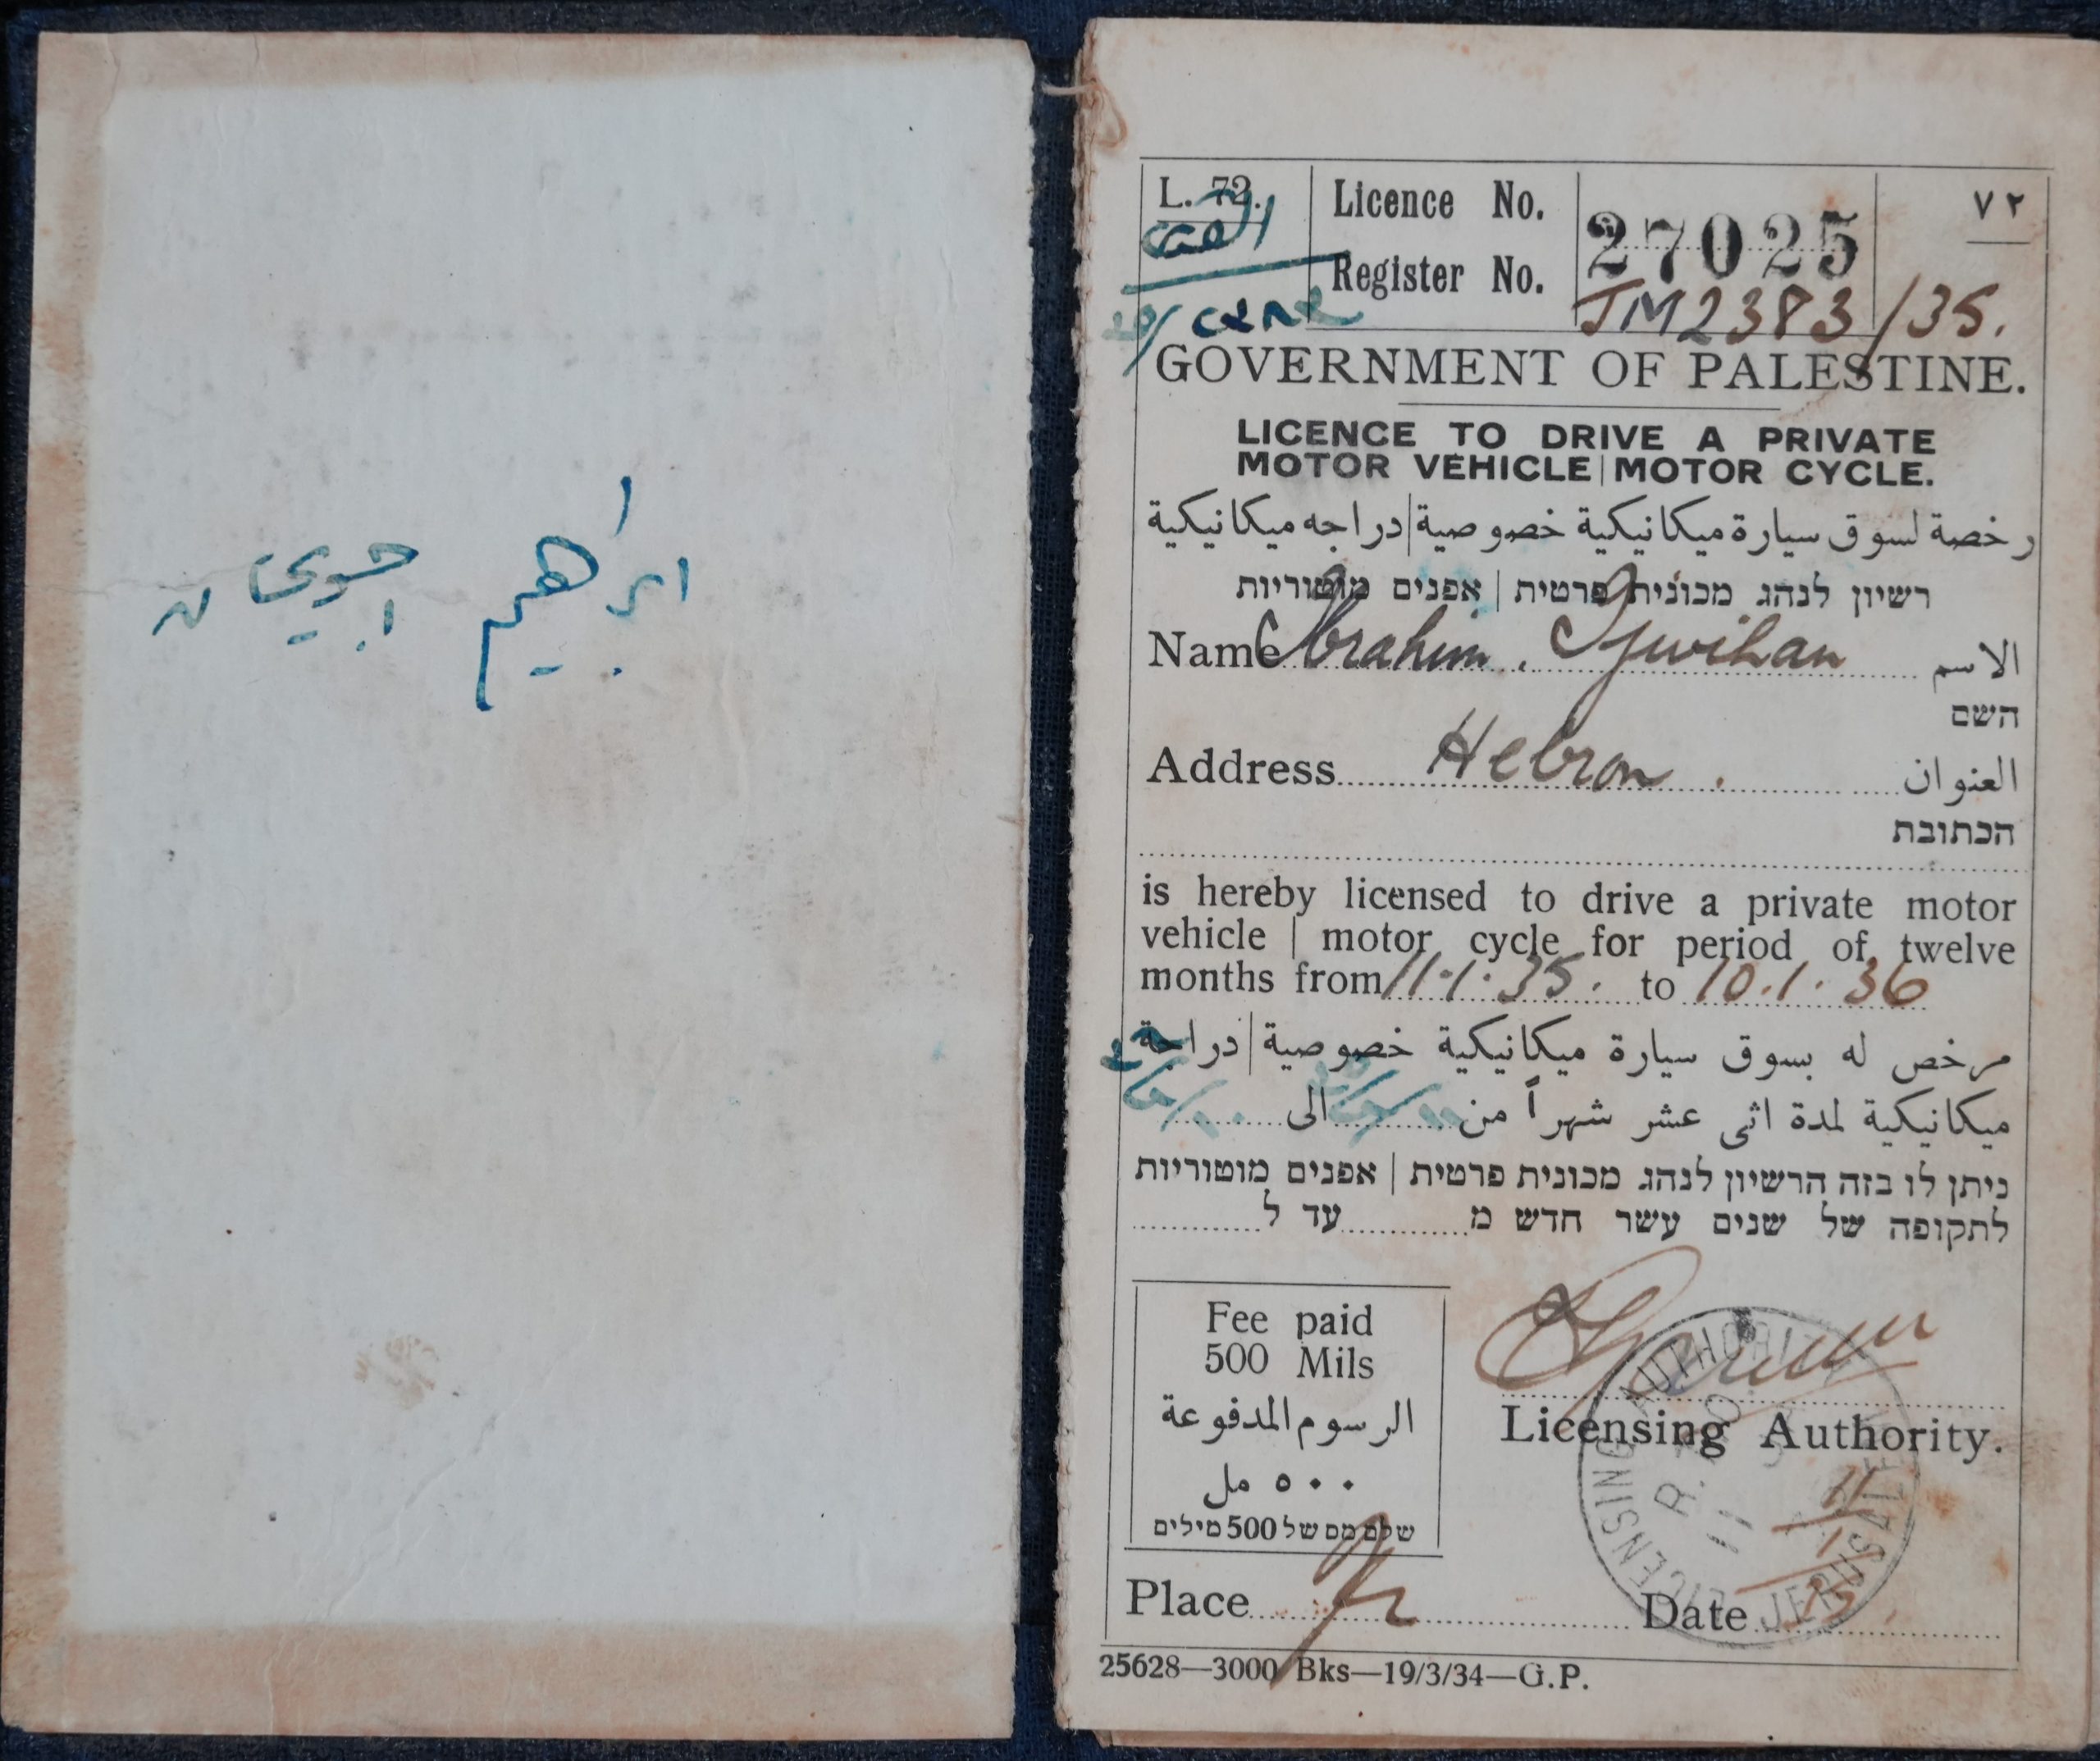 ابراهيم اجويحان
L. 72.
Licence No. 27025
٧٢
Register No. JM2383/35.
GOVERNMENT OF PALESTINE.
LICENCE TO DRIVE A PRIVATE
MOTOR VEHICLE | MOTOR CYCLE.
رخصة لسوق سيارة ميكانيكية خصوصية | دراجه ميكانيكية
רשיון לנהג מכונית פרטית | אפנים מוטוריות
Name Ibrahim. Ijwihan الاسم
השם
Address Hebron. العنوان
הכתובת
is hereby licensed to drive a private motor
vehicle | motor cycle for period of twelve
months from 11.1.35. to 10.1.36
مرخص له بسوق سيارة ميكانيكية خصوصية | دراجة
ميكانيكية لمدة اثنى عشر شهراً من الى
ניתן לו בזה הרשיון לנהג מכונית פרטית | אפנים מוטוריות
לתקופה של שנים עשר חדש מ עד ל
Fee paid
500 Mils
الرسوم المدفوعة
٥٠٠ مل
שלם מס של 500 מילים
Licensing Authority.
LICENSING AUTHORITY JERUSALEM
Place Date 11/1/35.
25628—3000 Bks—19/3/34—G.P.